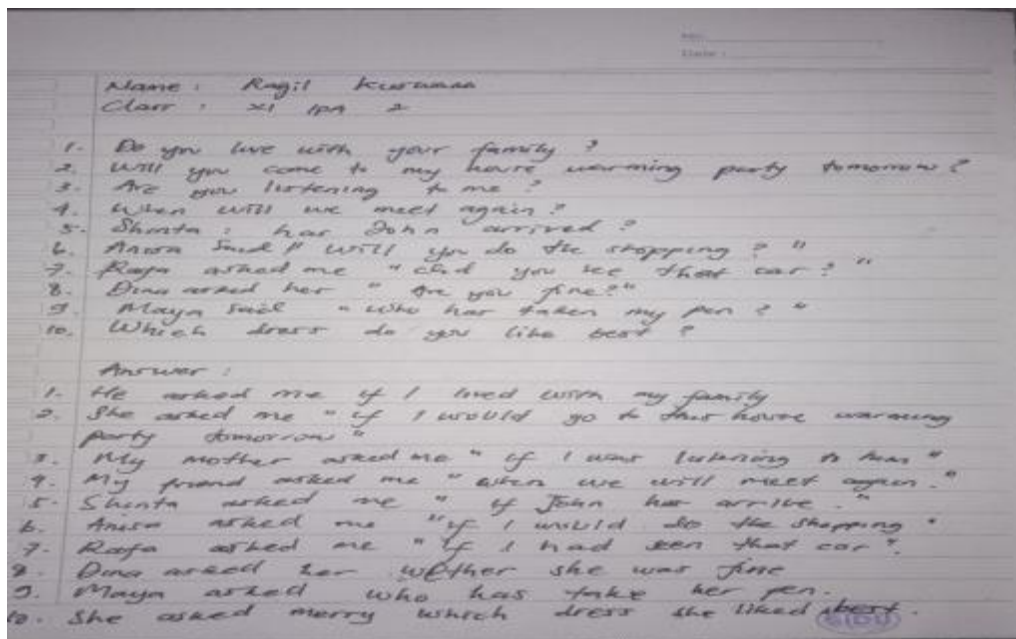 No:
Date:
Name : Ragil Kurniawan
Class : XI IPA 2
1. Do you live with your family ?
2. Will you come to my house warming party tomorrow ?
3. Are you listening to me ?
4. When will we meet again ?
5. Shinta : has John arrived ?
6. Anisa said " will you do the shopping ? "
7. Rafa asked me " did you see that car ? "
8. Dina asked her " Are you fine ? "
9. Maya said " who has taken my pen ? "
10. Which dress do you like best ?
Answer :
1. He asked me if I lived with my family
2. She asked me " if I would go to house warming
party tomorrow "
3. My mother asked me " if I was listening to "
4. My friend asked me " when we will meet again . "
5. Shinta asked me " if John has arrive . "
6. Anisa asked me " if I would do the shopping "
7. Rafa asked me " if I had seen that car " .
8. Dina asked her wether she was fine
9. Maya asked who has take her pen .
10. She asked merry which dress she liked best .
SIDU